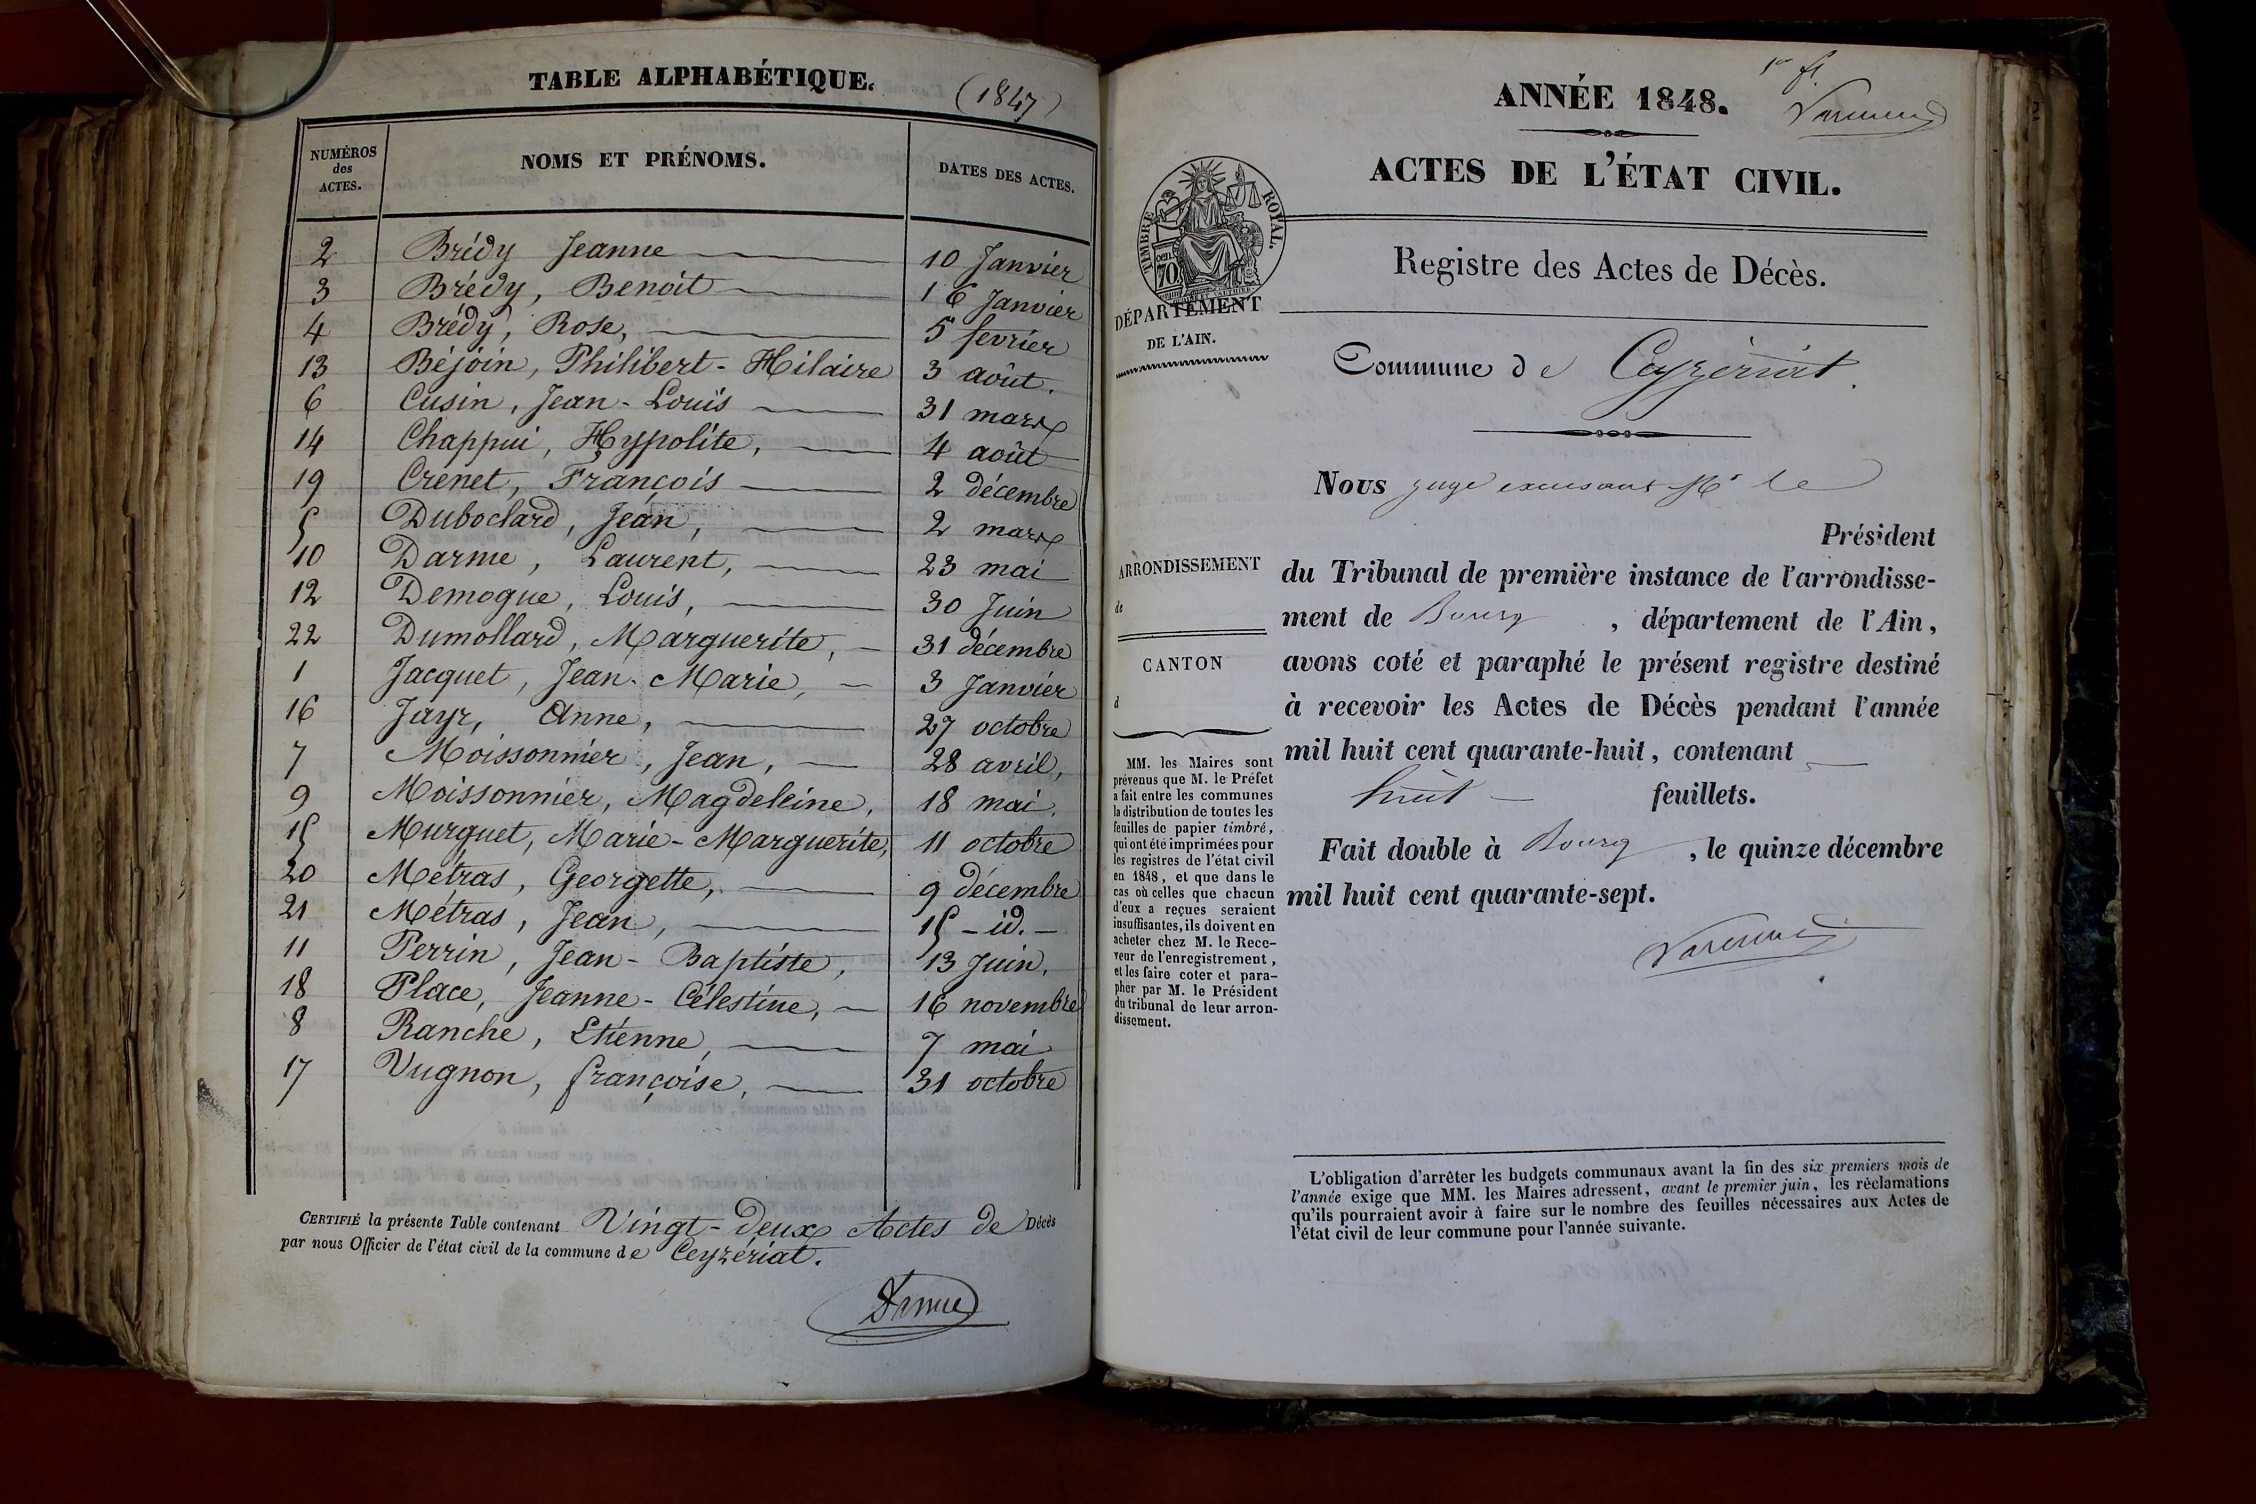 TABLE ALPHABÉTIQUE.
(1847)
NUMÉROS des ACTES.
NOMS ET PRÉNOMS.
DATES DES ACTES.
2 Brédy Jeanne 10 Janvier
3 Brédy, Benoit 16 Janvier
4 Brédy, Rose, 5 fevrier
13 Béjoin, Philibert-Hilaire 3 août.
6 Cusin, Jean-Louis 31 mars
14 Chappui, Hyppolite, 4 août
19 Crenet, François 2 décembre
5 Duboclard, Jean, 2 mars
10 Darme, Laurent, 23 mai
12 Demogue, Louis, 30 Juin
22 Dumollard, Marguerite, 31 décembre
1 Jacquet, Jean-Marie, 3 Janvier
16 Jayr, Anne, 27 octobre
7 Moissonnier, Jean, 28 avril,
9 Moissonnier, Magdeleine, 18 mai,
15 Murguet, Marie-Marguerite, 11 octobre
20 Métras, Georgette, 9 décembre
21 Métras, Jean, 15 - id. -
11 Perrin, Jean-Baptiste, 13 Juin,
18 Place, Jeanne-Célestine, 16 novembre
8 Ranche, Etienne, 7 mai
17 Vugnon, françoise, 31 octobre
CERTIFIÉ la présente Table contenant Vingt-deux Actes de Décès
par nous Officier de l'état civil de la commune de Ceyzériat.
1er ft.
ANNÉE 1848.
ACTES DE L'ÉTAT CIVIL.
TIMBRE ROYAL.
70
Registre des Actes de Décès.
DÉPARTEMENT
DE L'AIN.
Commune de Ceyzériat.
Nous juge excusant Mr le
Président
ARRONDISSEMENT
de
CANTON
d
du Tribunal de première instance de l'arrondisse-
ment de Bourg, département de l'Ain,
avons coté et paraphé le présent registre destiné
à recevoir les Actes de Décès pendant l'année
mil huit cent quarante-huit, contenant
huit feuillets.
Fait double à Bourg, le quinze décembre
mil huit cent quarante-sept.
MM. les Maires sont
prévenus que M. le Préfet
a fait entre les communes
la distribution de toutes les
feuilles de papier timbré,
qui ont été imprimées pour
les registres de l'état civil
en 1848, et que dans le
cas où celles que chacun
d'eux a reçues seraient
insuffisantes, ils doivent en
acheter chez M. le Rece-
veur de l'enregistrement,
et les faire coter et para-
pher par M. le Président
du tribunal de leur arron-
dissement.
L'obligation d'arrêter les budgets communaux avant la fin des six premiers mois de
l'année exige que MM. les Maires adressent, avant le premier juin, les réclamations
qu'ils pourraient avoir à faire sur le nombre des feuilles nécessaires aux Actes de
l'état civil de leur commune pour l'année suivante.